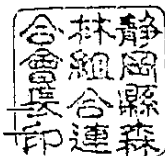 静岡縣森
林組合連
合會長之印